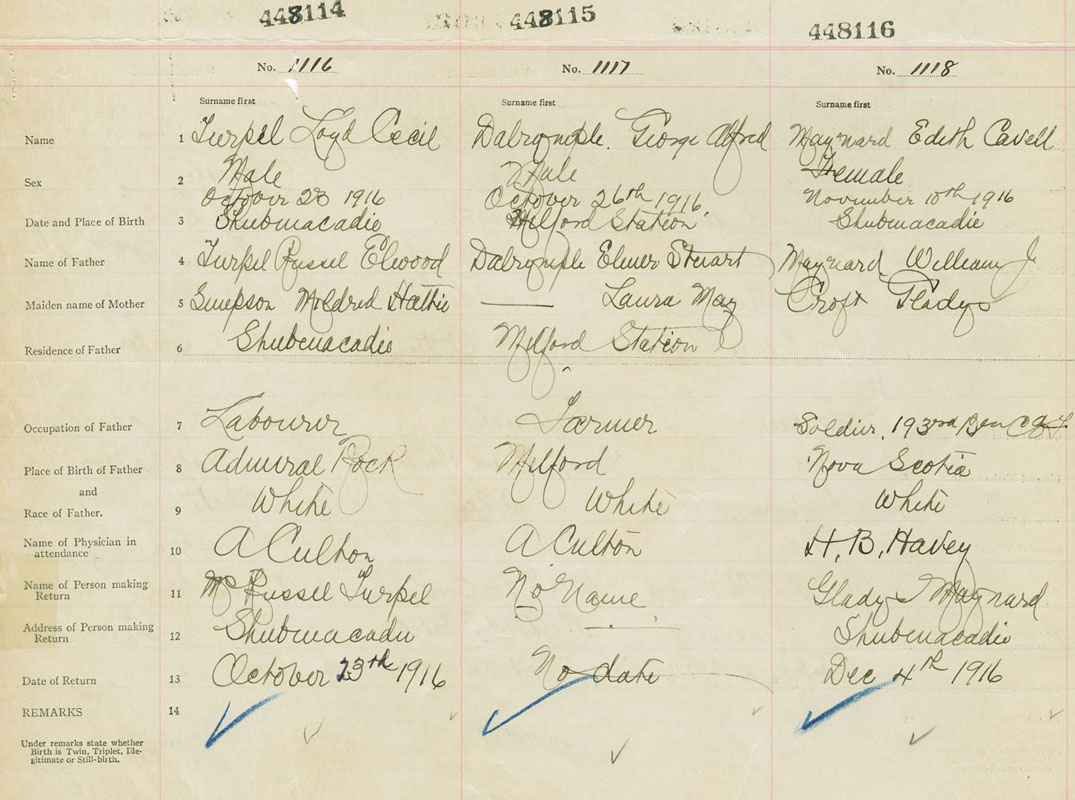 448114 448115 448116
No. 1116 No. 1117 No. 1118
Surname first Surname first Surname first
Name 1 Turpel Loyd Cecil Dalrymple. George Alfred Maynard Edith Cavell
Sex 2 Male Male Female
October 23 1916 October 26th 1916 November 10th 1916
Date and Place of Birth 3 Shubenacadie Milford Station Shubenacadie
Name of Father 4 Turpel Russel Elwood Dalrymple Elmer Stewart Maynard William J
Maiden name of Mother 5 Simpson Mildred Hattie Laura May Croft Gladys
Residence of Father 6 Shubenacadie Milford Station
Occupation of Father 7 Labourer Farmer Soldier. 193rd
Place of Birth of Father 8 Admiral Rock Milford Nova Scotia
and
Race of Father. 9 White White White
Name of Physician in attendance 10 A Culton A Culton H. B. Havey
Name of Person making Return 11 Russel Turpel No Name Glady Maynard
Address of Person making Return 12 Shubenacadie Shubenacadie
Date of Return 13 October 23th 1916 No date Dec 4th 1916
REMARKS 14
Under remarks state whether
Birth is Twin, Triplet, Ille-
gitimate or Still-birth.